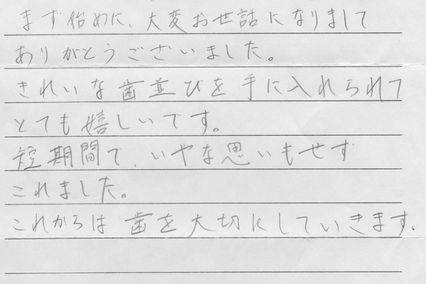 まず始めに、大変お世話になりまして
ありがとうございました。
きれいな歯並びを手に入れられて
とても嬉しいです。
短期間で、いやな思いもせず
これました。
これからは歯を大切にしていきます.